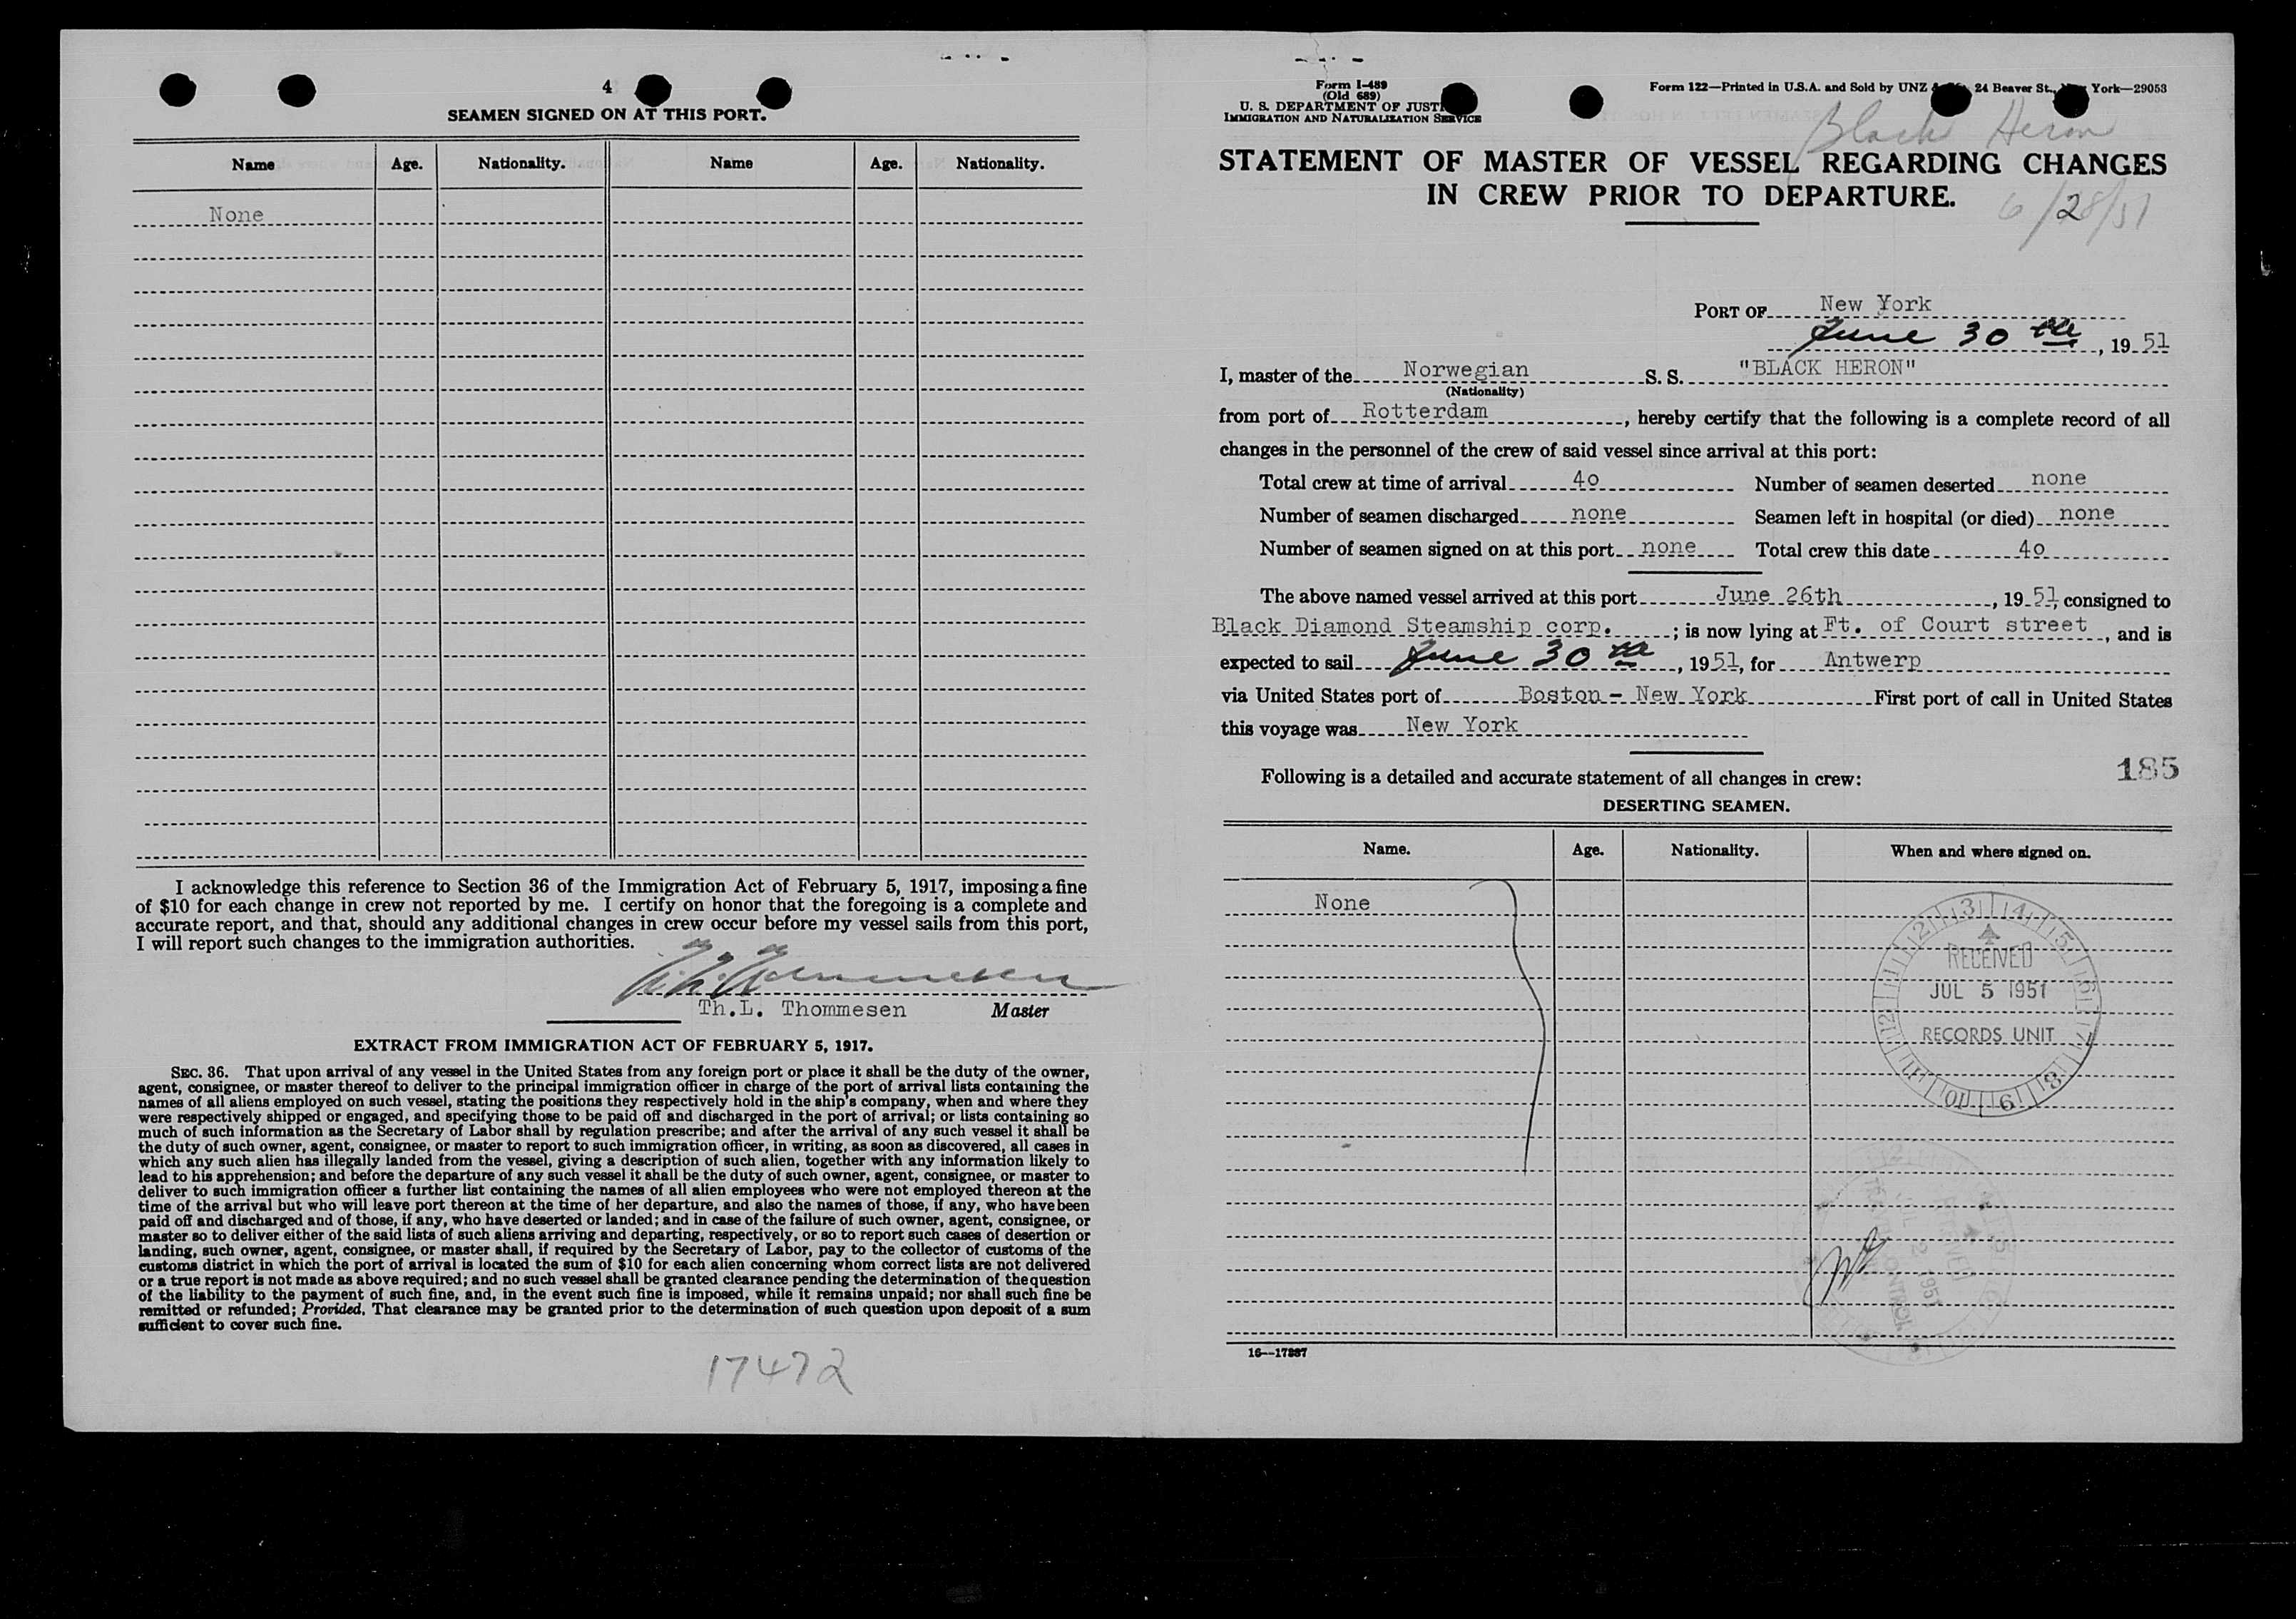 4
SEAMEN SIGNED ON AT THIS PORT.
Name Age. Nationality. Name Age. Nationality.
None
I acknowledge this reference to Section 36 of the Immigration Act of February 5, 1917, imposing a fine
of $10 for each change in crew not reported by me. I certify on honor that the foregoing is a complete and
accurate report, and that, should any additional changes in crew occur before my vessel sails from this port,
I will report such changes to the immigration authorities.
Th.L. Thommesen Master
EXTRACT FROM IMMIGRATION ACT OF FEBRUARY 5, 1917.
SEC. 36. That upon arrival of any vessel in the United States from any foreign port or place it shall be the duty of the owner,
agent, consignee, or master thereof to deliver to the principal immigration officer in charge of the port of arrival lists containing the
names of all aliens employed on such vessel, stating the positions they respectively hold in the ship's company, when and where they
were respectively shipped or engaged, and specifying those to be paid off and discharged in the port of arrival; or lists containing so
much of such information as the Secretary of Labor shall by regulation prescribe; and after the arrival of any such vessel it shall be
the duty of such owner, agent, consignee, or master to report to such immigration officer, in writing, as soon as discovered, all cases in
which any such alien has illegally landed from the vessel, giving a description of such alien, together with any information likely to
lead to his apprehension; and before the departure of any such vessel it shall be the duty of such owner, agent, consignee, or master to
deliver to such immigration officer a further list containing the names of all alien employees who were not employed thereon at the
time of the arrival but who will leave port thereon at the time of her departure, and also the names of those, if any, who have been
paid off and discharged and of those, if any, who have deserted or landed; and in case of the failure of such owner, agent, consignee, or
master so to deliver either of the said lists of such aliens arriving and departing, respectively, or so to report such cases of desertion or
landing, such owner, agent, consignee, or master shall, if required by the Secretary of Labor, pay to the collector of customs of the
customs district in which the port of arrival is located the sum of $10 for each alien concerning whom correct lists are not delivered
or a true report is not made as above required; and no such vessel shall be granted clearance pending the determination of the question
of the liability to the payment of such fine, and, in the event such fine is imposed, while it remains unpaid; nor shall such fine be
remitted or refunded; Provided, That clearance may be granted prior to the determination of such question upon deposit of a sum
sufficient to cover such fine.
17472
Form I-489
(Old 689)
U. S. DEPARTMENT OF JUSTI
IMMIGRATION AND NATURALIZATION SERVICE
Form 122—Printed in U.S.A. and Sold by UNZ & 24 Beaver St., York—29053
Black Heron
STATEMENT OF MASTER OF VESSEL REGARDING CHANGES
IN CREW PRIOR TO DEPARTURE.
6/28/51
PORT OF New York
June 30 th, 1951
I, master of the Norwegian S. S. "BLACK HERON"
(Nationality)
from port of Rotterdam, hereby certify that the following is a complete record of all
changes in the personnel of the crew of said vessel since arrival at this port:
Total crew at time of arrival 40 Number of seamen deserted none
Number of seamen discharged none Seamen left in hospital (or died) none
Number of seamen signed on at this port none Total crew this date 40
The above named vessel arrived at this port June 26th, 1951, consigned to
Black Diamond Steamship corp.; is now lying at Ft. of Court street, and is
expected to sail June 30 th, 1951, for Antwerp
via United States port of Boston - New York First port of call in United States
this voyage was New York
185
Following is a detailed and accurate statement of all changes in crew:
DESERTING SEAMEN.
Name. Age. Nationality. When and where signed on.
None
1 2 3 4 5 6 7 8 9 10 11 12
RECEIVED
JUL 5 1951
RECORDS UNIT
16—17887